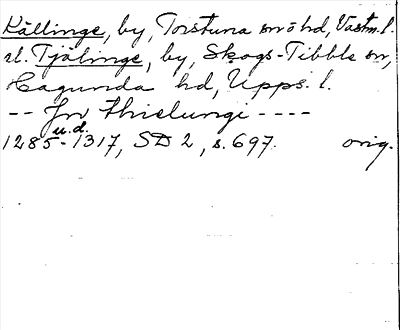 Källinge, by, Torstuna sn o hd, Västm. l.
el. Tjälinge, by, Skogs-Tibble sn,
Hagunda hd, Upps. l.
-- Jn thielungi ----
u.d.
1285-1317, SD 2, s. 697. orig.